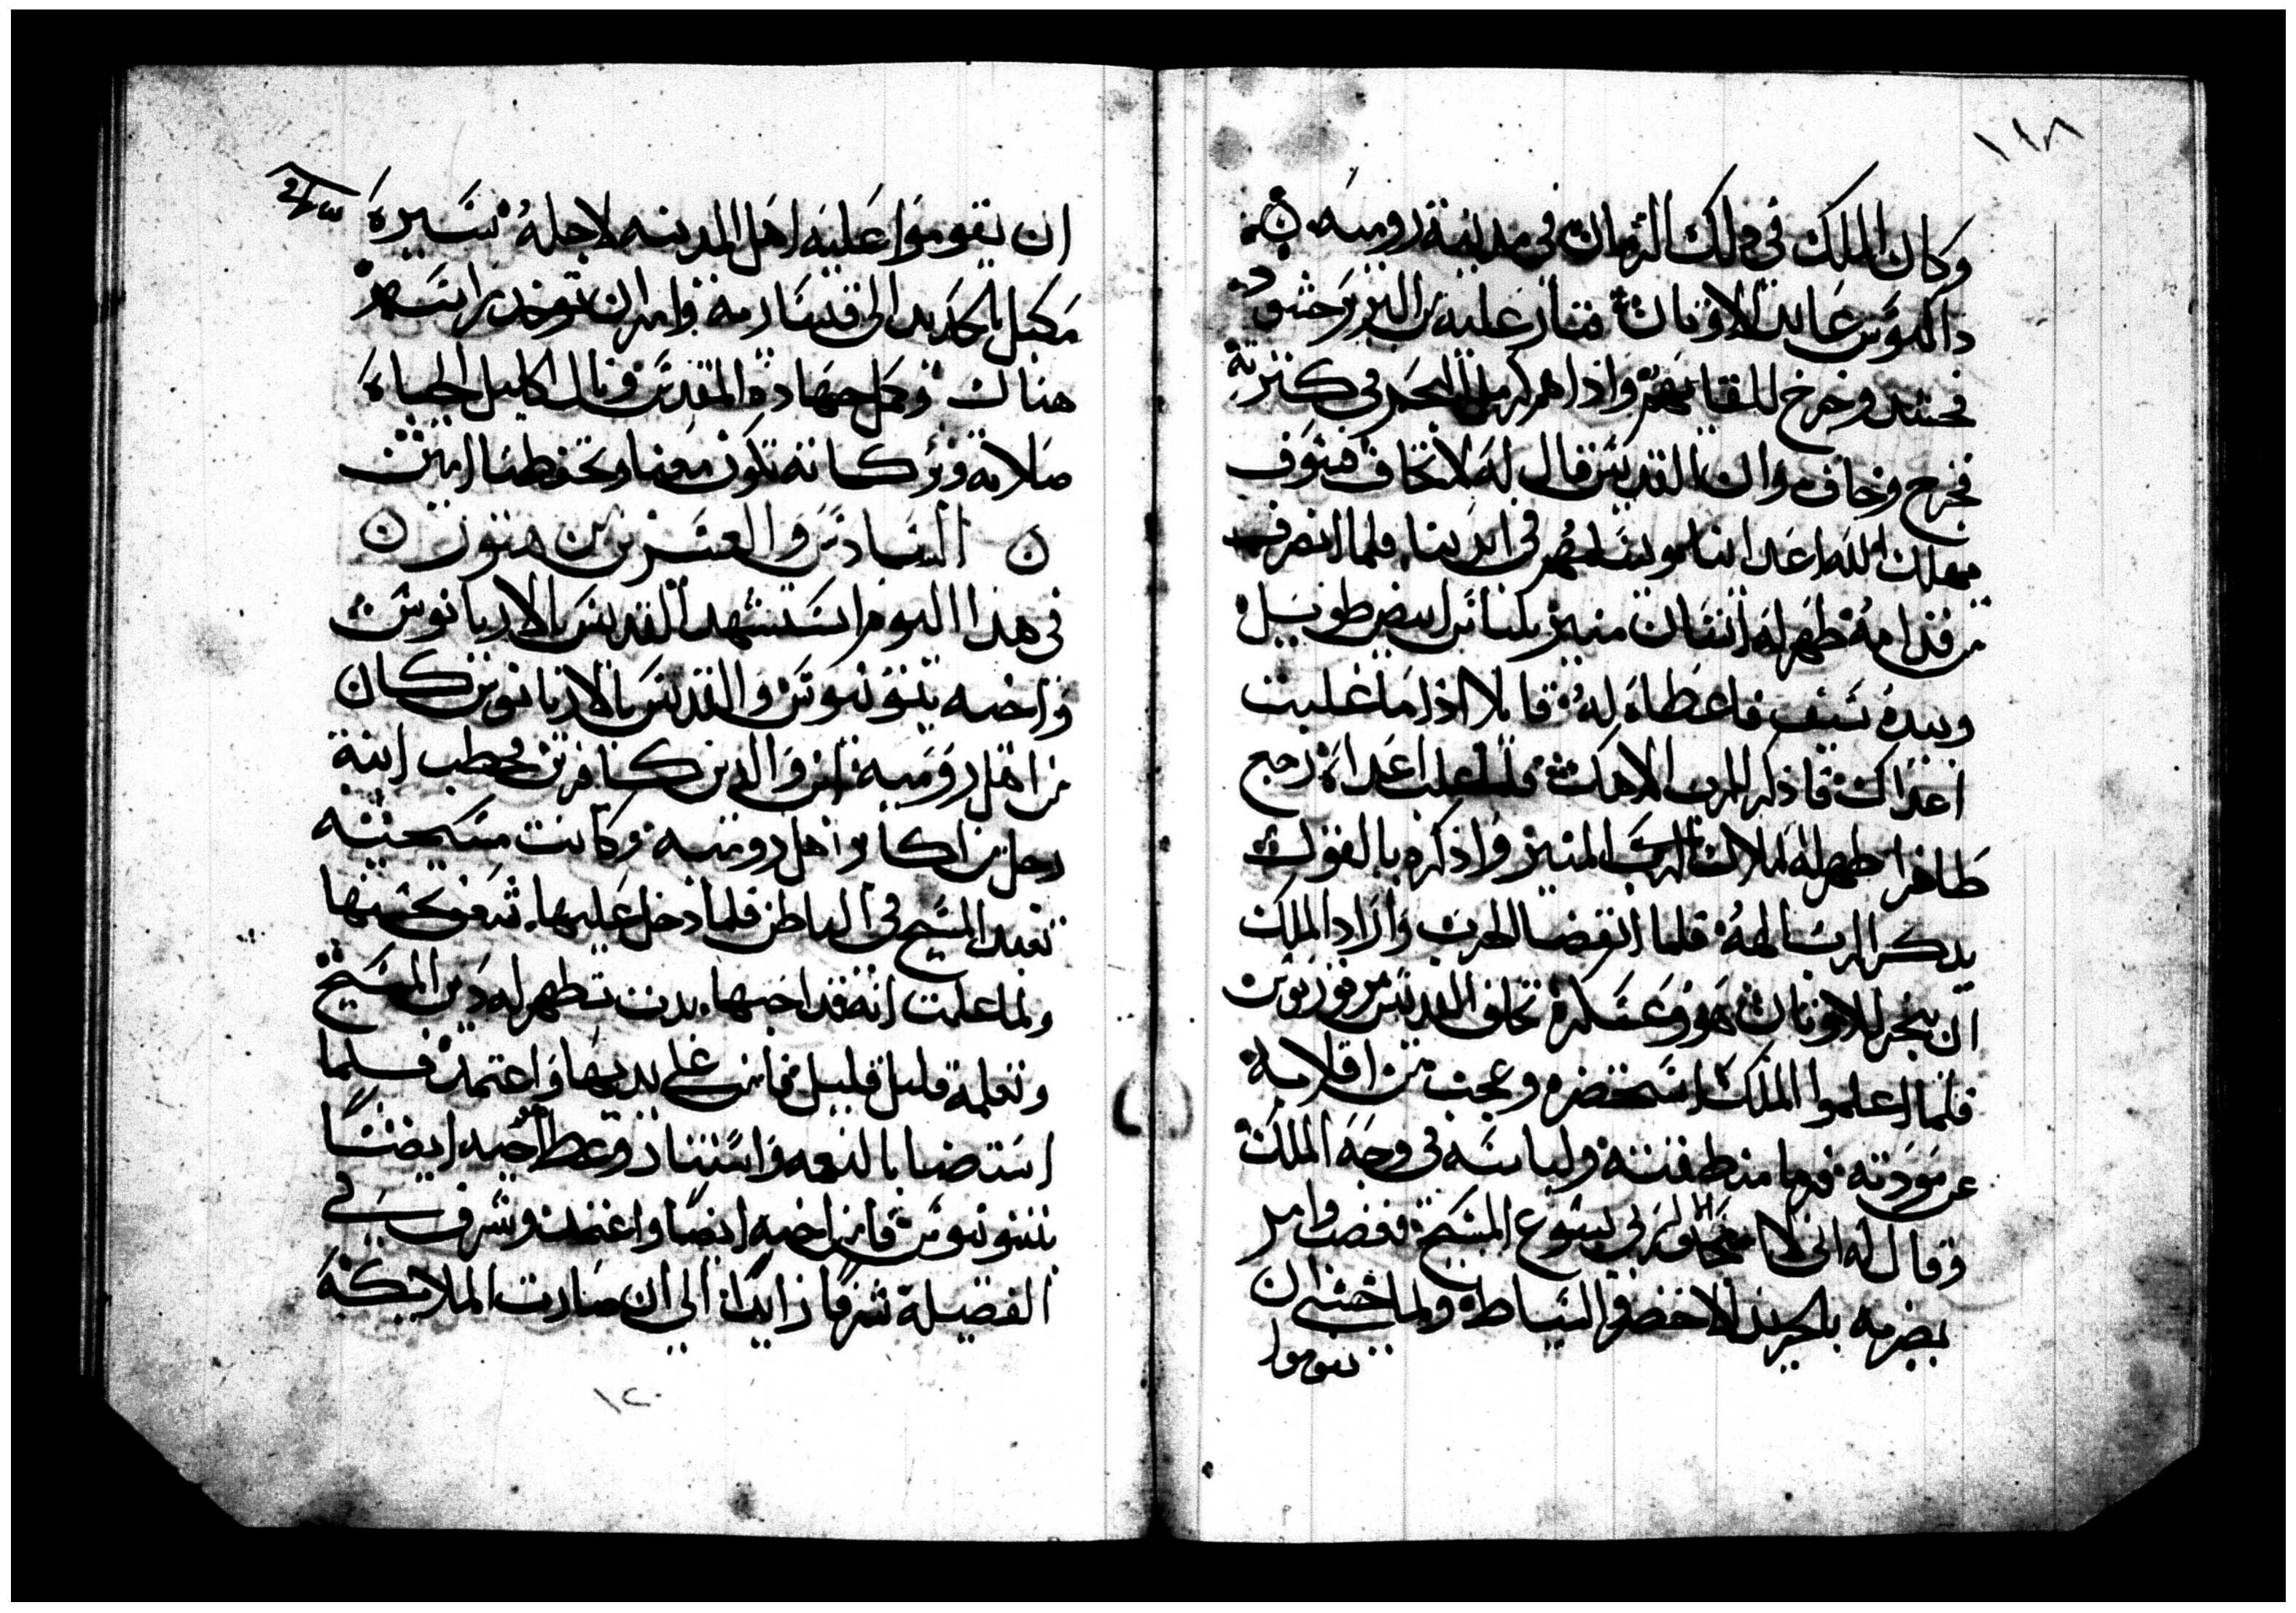 ١١٨
وكان الملك في دلك الزمان في مدينة رومية
داكيوس عابد الاوثان فثار عليه البربر
فحشد وخرج للقايهم واذا هم كرمل البحر في كثرته
فجزع وخاف وان القديس قال له لا تخاف فسوف
يهلك الله اعدانا ويسلمهم في ايدينا فلما انصرف
من قدامه ظهر له انسان منير بلباس ابيض طويل
وبيده سيف فاعطاه له قايلا اذا ما غلبت
اعداك فاذكر الرب الاهك فلما غلب اعداه رجع
ظافرا ظهر له ملاك الرب المنير واذكره بالقول
يدكر الرب الهه فلما انقضا الحرب واراد الملك
ان يبخر للاوثان هو وعسكره تخلف القديس مرقوريوس
فلما اعلموا الملك استحضره وعجب من اقلابه
عن مودته فرما منطقته ولباسه في وجه الملك
وقال له اني لا لربي يسوع المسيح فغضب وامر
بضربه بالجريد الاخضر والسياط ولما خشي ان
يقوموا
ان يقوموا عليه اهل المدينه لاجله سيره
مكبل بالحديد الى قيسارية وامر ان توخد راسه
هناك وكمل جهاده المقدس ونال اكليل الحياه
صلاته وبركاته تكون معنا وتحفظنا امين
السادس والعشرين من هتور
في هدا اليوم استشهد القديس بالاريانوس
واخيه تيبوتيوس والقديس بالاريانوس كان
من اهل رومية ابن والدين كافرين فخطب ابنة
رجل من اكابر اهل رومية وكانت مسيحيه
تعبد المسيح في الباطن فلما دخل عليها شغف بحسنها
ولما علمت انه قد احبها بدت تظهر له دين المسيح
وتعلمه قليل قليل فامن على يديها واعتمد فلما
استضا بالنعمه واستنار وعظ اخيه ايضا
تيبوتيوس فامن اخيه ايضا واعتمد وشرف في
الفضيلة شرفا زايدا الى ان صارت الملايكه
١٢٠